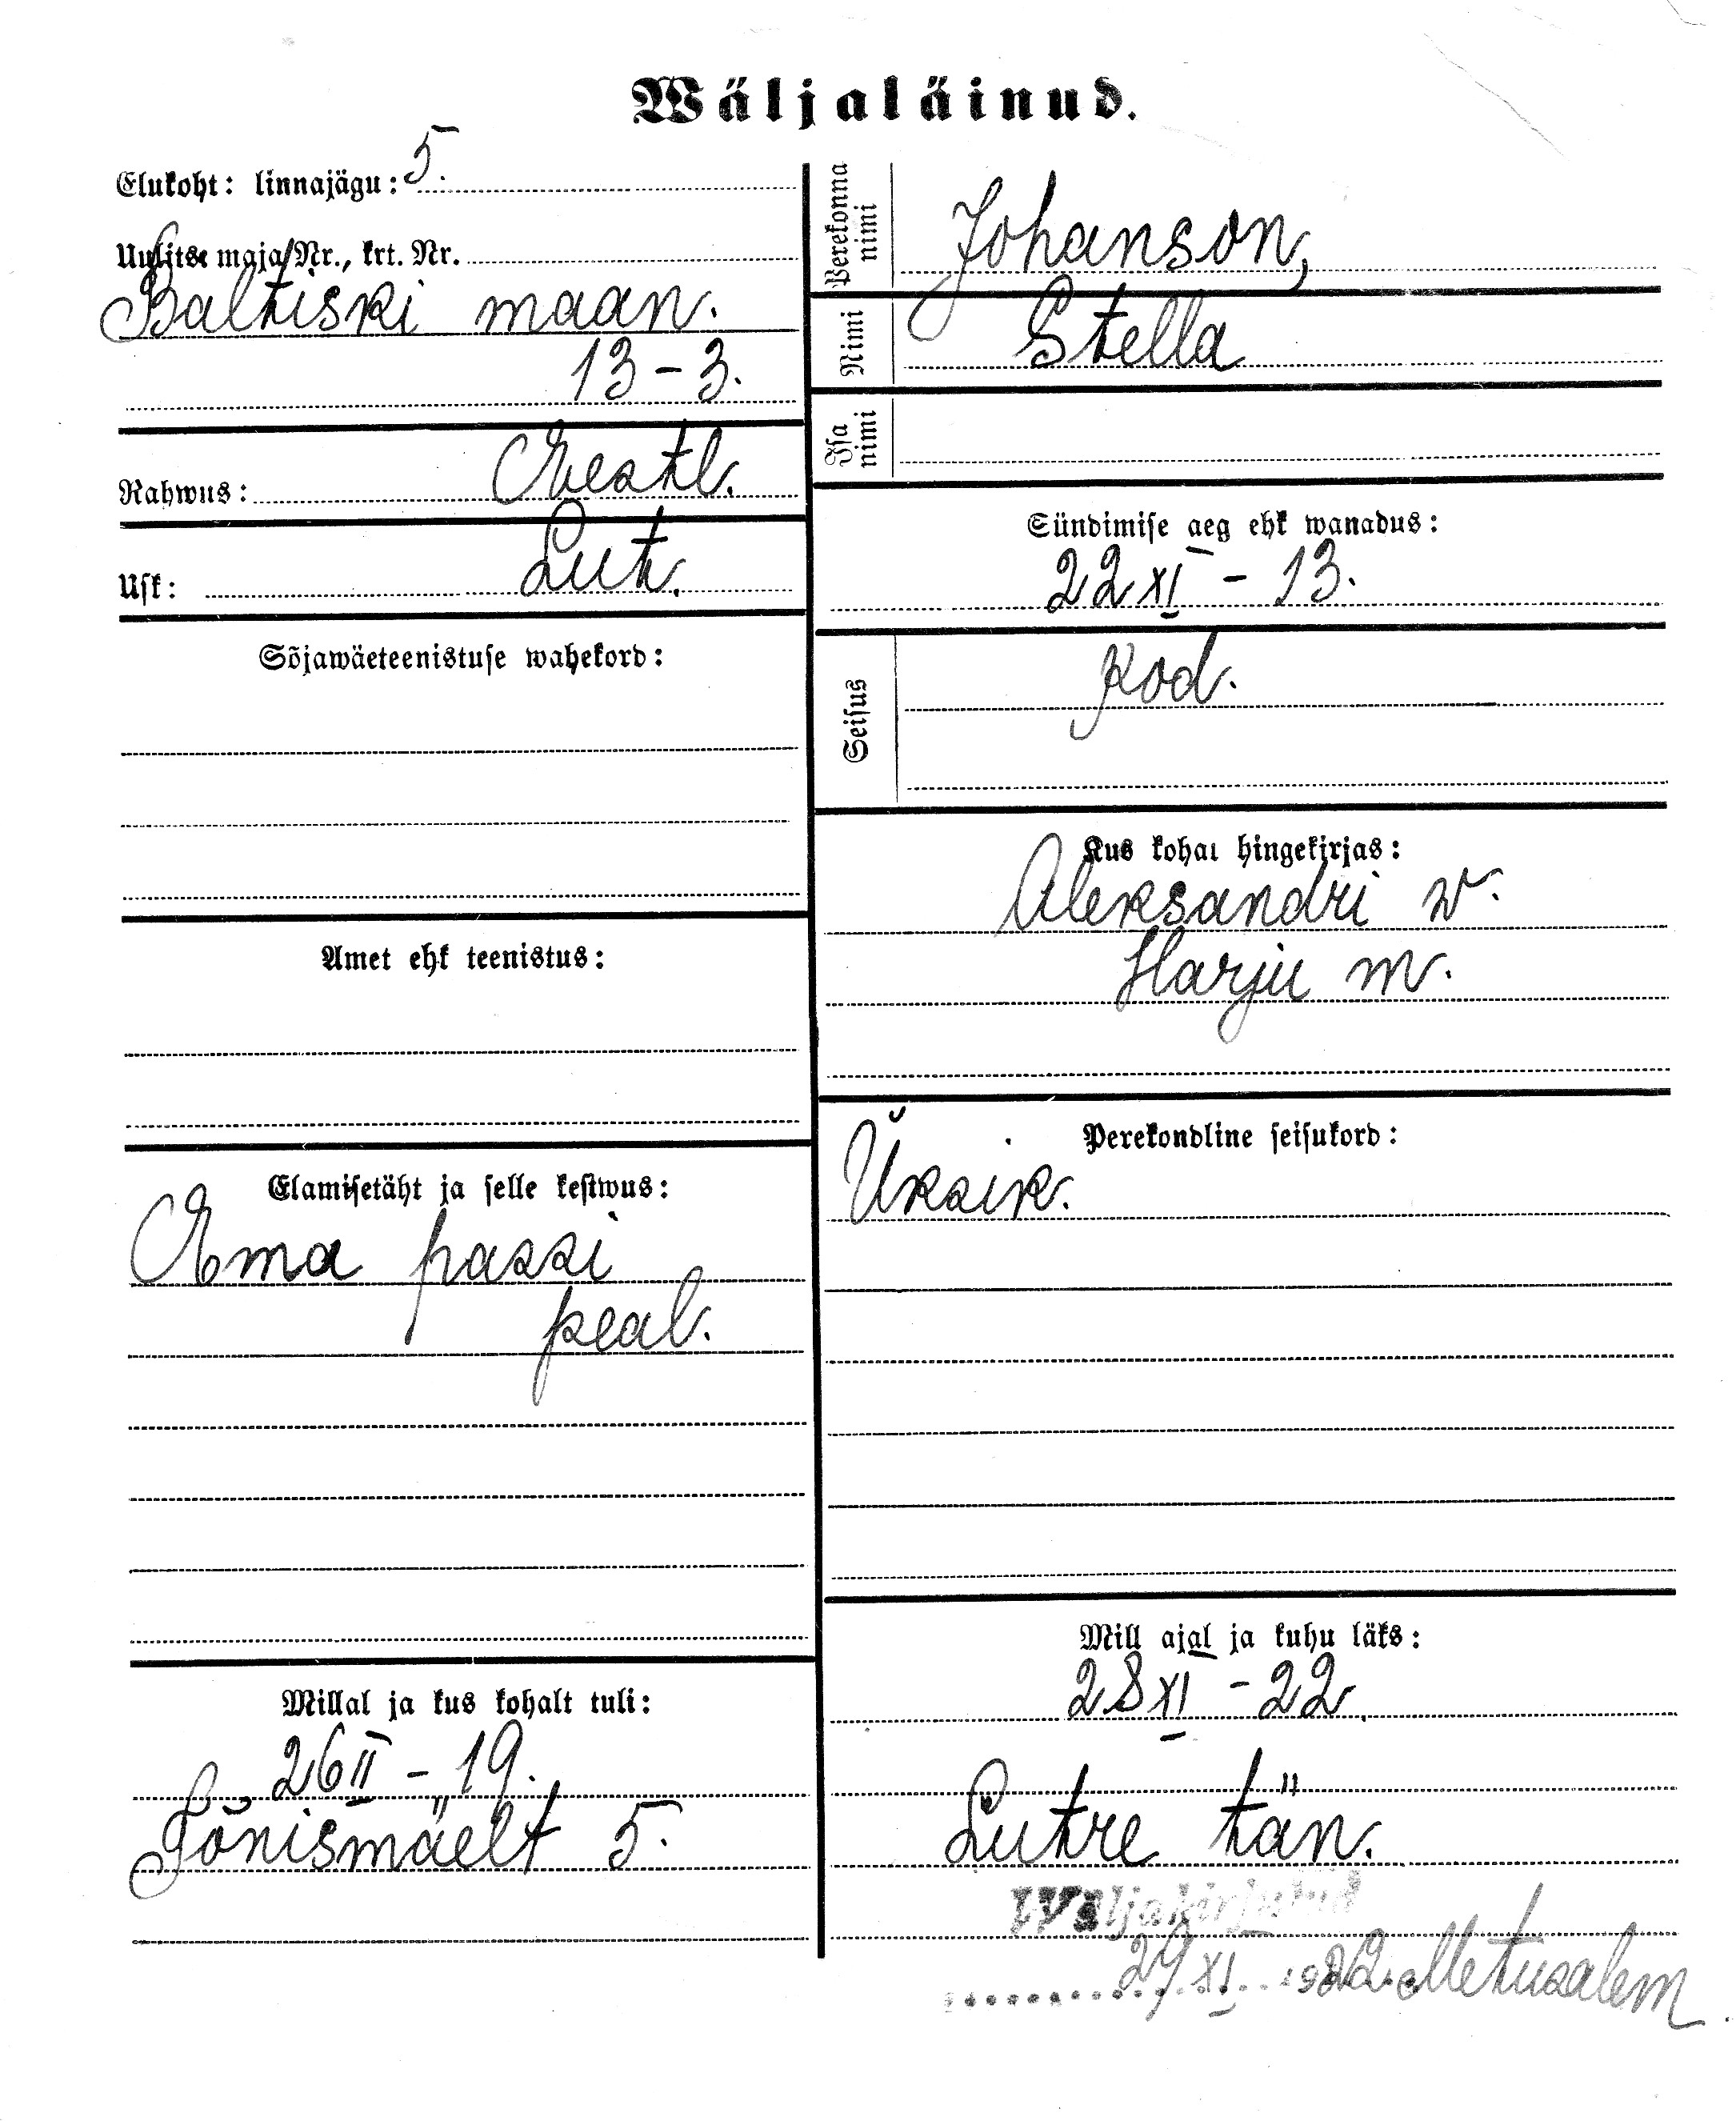 Wäljaläinud.
Elukoht: linnajägu: 5.
Uulitse maja Nr., krt. Nr.
Baltiski maan.
13 - 3.
Rahwus: Eestl.
Usk: Lut.
Sõjawäeteenistuse wahekord:
Amet ehk teenistus:
Elamisetäht ja selle kestwus:
Ema passi
peal.
Millal ja kus kohalt tuli:
26 II - 19.
Tõnismäelt 5.
Perekonna nimi
Johanson,
Nimi
Stella
Isa nimi
Sündimise aeg ehk wanadus:
22 XI - 13.
Seisus
Kod.
Kus kohal hingekirjas:
Aleksandri w.
Harju m.
Perekondline seisukord:
Üksik.
Mill ajal ja kuhu läks:
28 XI - 22.
Lutre tän.
Wäljakirjutud
29 XI 1922. Metusalem